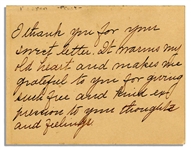 I thank you for your
sweet letter. It warms my
old heart and makes me
grateful to you for giving
such free and kind ex-
pression to your thoughts
and feelings